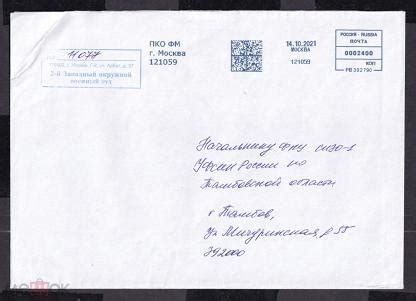 ПКО ФМ
г. Москва
121059
14.10.2021
МОСКВА
121059
РОССИЯ - RUSSIA
ПОЧТА
0002400
КОП
РВ 392790
11077
2-й Западный окружной
военный суд
Начальнику ФКУ СИЗО-1
УФСИН России по
Тамбовской области
г Тамбов,
Ул Мичуринская, д 55
392000